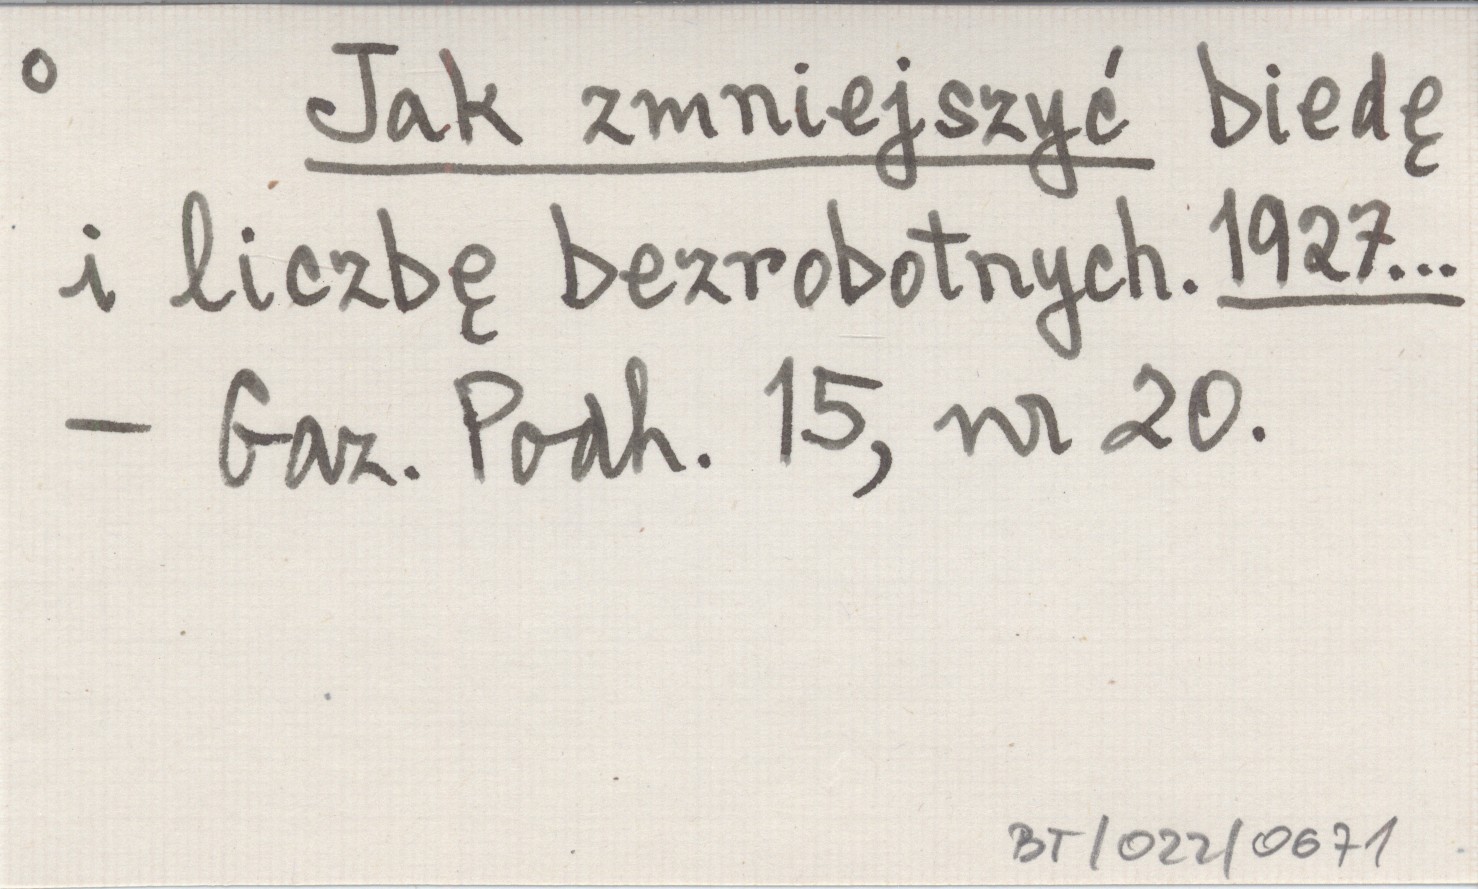 o Jak zmniejszyć biedę
i liczbę bezrobotnych. 1927...
— Gaz. Podh. 15, nr 20.
BT/022/0671